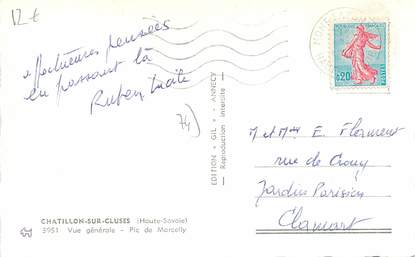 12 €
affectueuses pensées
en passant là
74)
CHATILLON-SUR-CLUSES (Haute-Savoie)
3951 Vue générale - Pic de Marcelly
EDITION « GIL » - ANNECY
Reproduction interdite
0,20
POSTES
M et Mme E. Flament
rue de Crouy
Jardin Parisien
Clamart